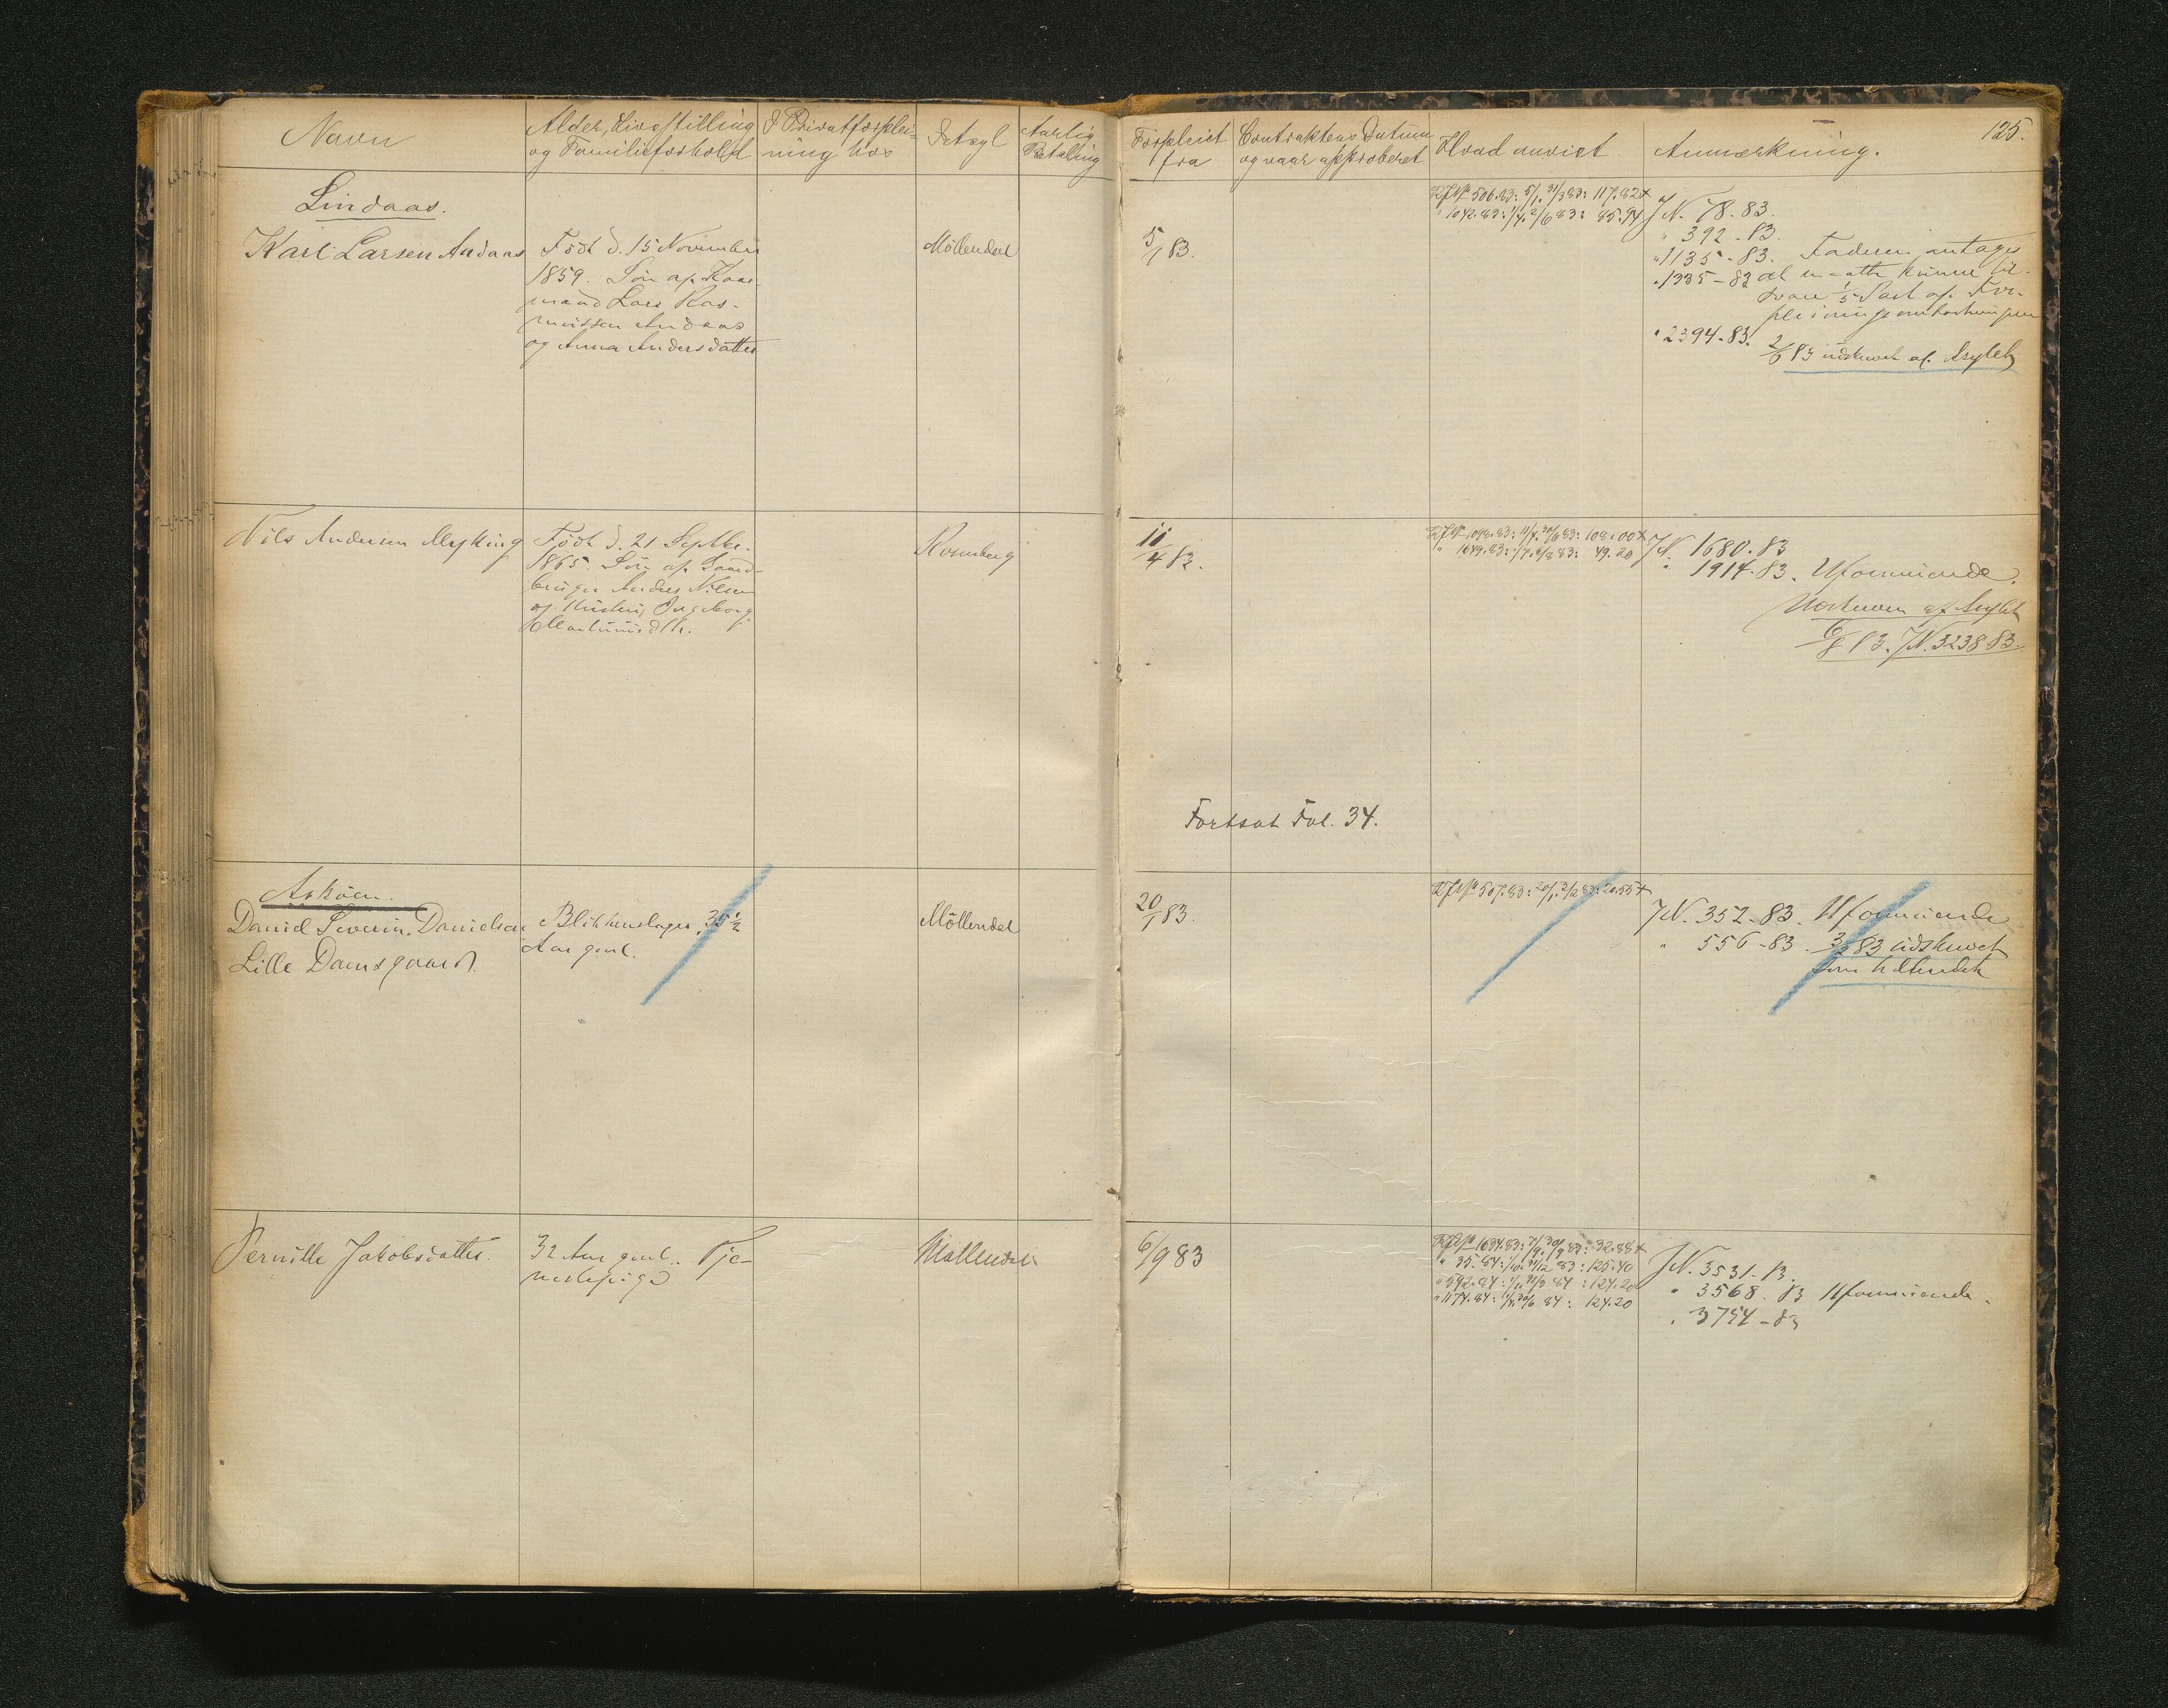 Navn
Alder, Livsstilling
og Familieforhold
I Privatforplei-
ning hos
I Asyl
Aarlig
Betaling
Forpleiet
fra
Contraktens Datum
og naar approberet
Hvad anvist
Anmærkning.
125.
Lindaas.
Karl Larsen Andaas
Födt d. 15 November
1859. Sön af Kaar-
mand Lars Ras-
mussen Andaas
og Anna Andersdatter
Möllendal
5/1 83.
RJNo 506.83: 5/1. 31/3 83: 117.82+
" 1042.83: 1/4. 2/6 83: 85.94
JN. 78.83.
" 392-83.
" 1135-83. Faderen antages
" 1335-83 at maatte kunne til-
svare 1/5 Part af For-
pleiningsomkostningerne
" 2394-83. 2/6 83 udskrevet af Asylet
Nils Andersen Myking
Födt d. 21 Septbr.
1865. Sön af Gaard-
bruger Anders Nilsen
og Hustru Ingeborg
Martinusdtr.
Rosenberg
11/4 83.
RJNo 1048.83: 11/4. 30/6 83: 108.00+
" 1649.83: 1/7. 6/8 83: 49.20
JN. 1680.83
" 1914-83. Uformuende.
Udskreven af Asylet
6/8 83. JN. 3238-83.
Fortsat Fol. 34.
Askøen.
Daniel Severin Danielsen
Lille Damsgaard.
Blikkenslager, 35 1/2
Aar gml.
Möllendal
20/1 83.
RJNo 507.83: 20/1. 3/2 83: 20.55+
JN. 352-83. Uformuende
" 556-83. 3/2 83 udskrevet
som helbredet
Pernille Jakobsdatter.
32 Aar gml. Tje-
nestepige
Möllendal
6/9 83
RJNo 1684.83: 7/9. 30/9 83: 32.88+
" 35.84: 1/10. 31/12 83: 125.40
" 592.84: 1/1. 31/3 84: 124.20
" 1174.84: 1/4. 30/6 84: 124.20
JN. 3531-83.
" 3568.83 Uformuende.
" 3754-83